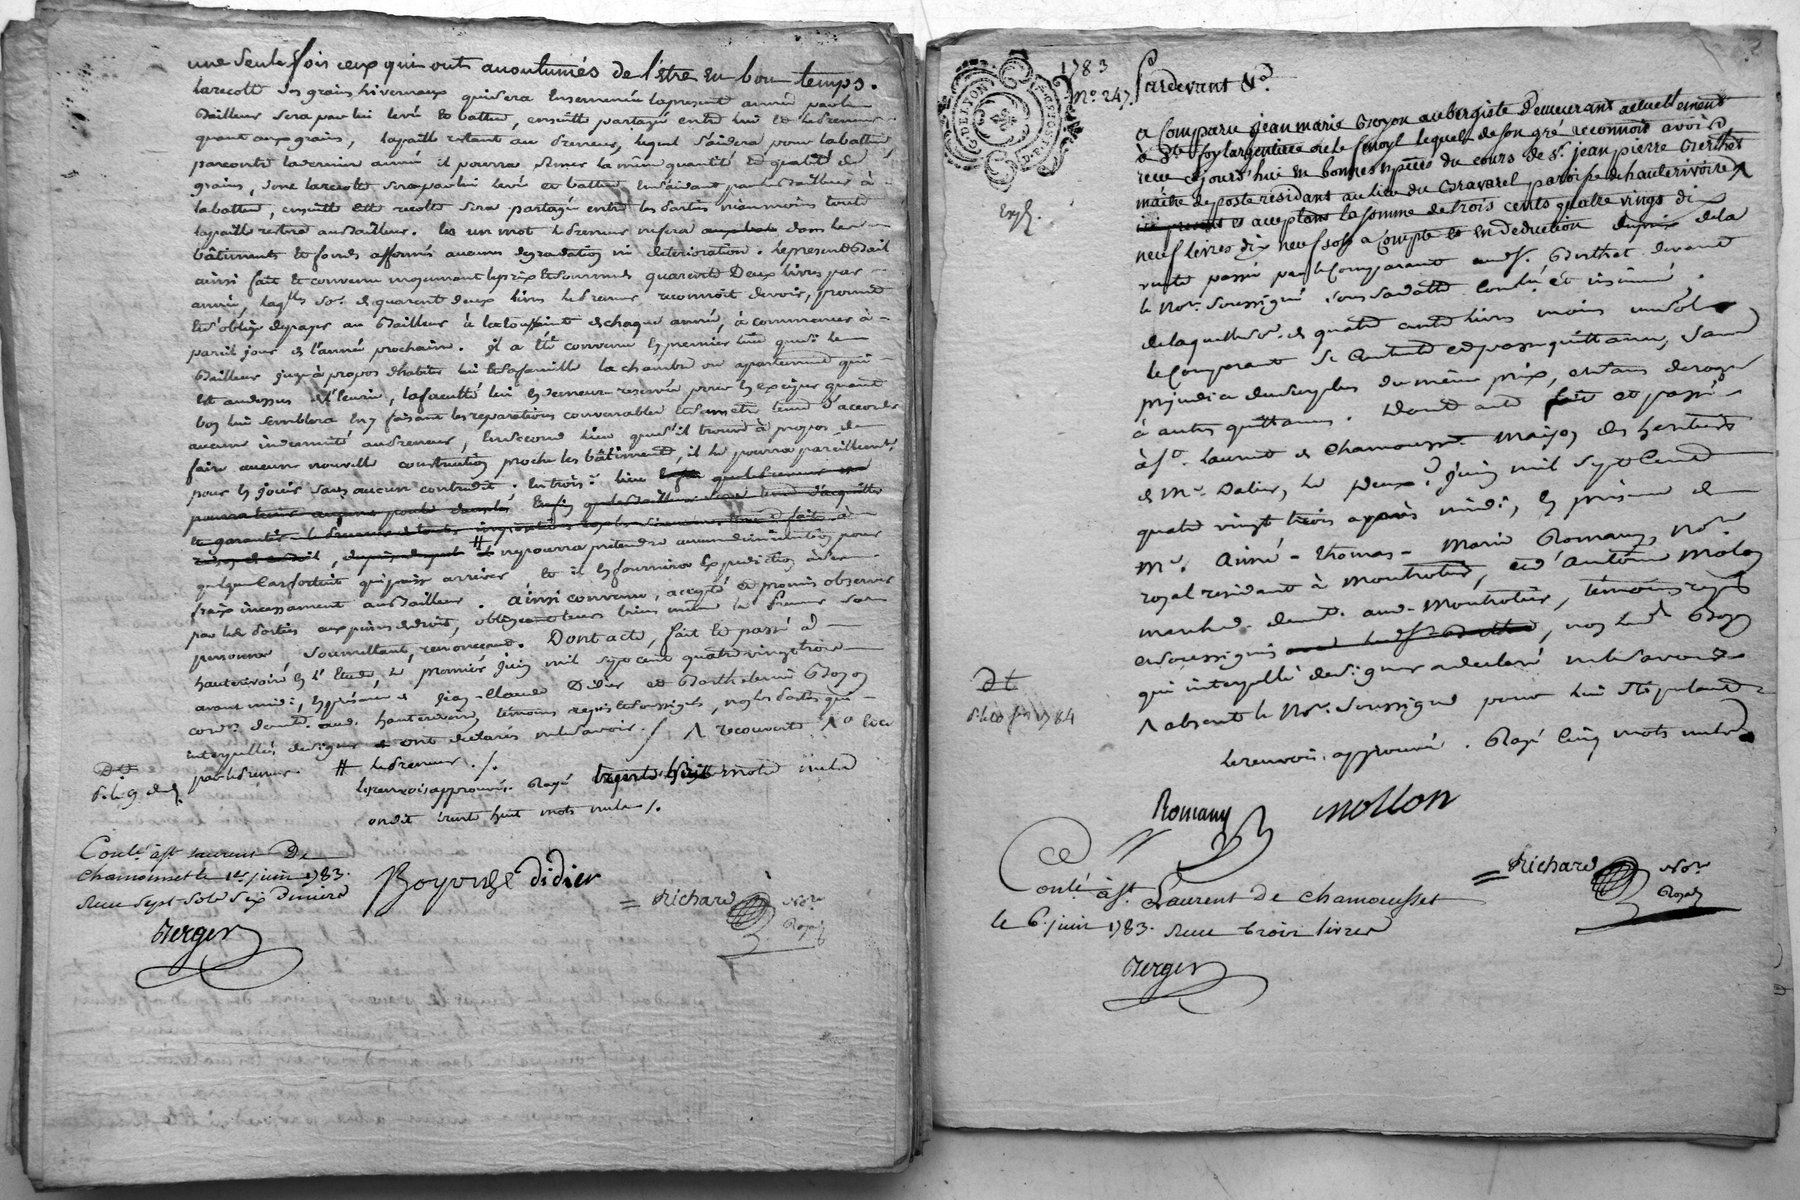 une seule fois ceux qui ont accoutumés de l'estre en bon temps.
la recolte des grains hivernaux qui sera ensemencée la present année par le
Bailleur sera par lui levé et battue, ensuitte partagé entre lui et le preneur
quant aux grains, la paille restant au preneur, lequel s'aidera pour la battue
par contre la derniere année il pourra semer la même quantité et qualité de
grains, dont la recolte sera par lui levé et battue en s'aidant par le Bailleur à
la battue, ensuitte elle recolte sera partagé entre les parties néanmoins toute
la paille restera au Bailleur. en un mot le preneur ne fera dans les
bâtiments et fonds affermés aucunes degradations ni deterioration. le present Bail
ainsi fait et convenu moyennant le prix et somme de quarente deux livres par
année, laqlle so.e de quarente deux livres le preneur reconnoit devoir, promet
et s'oblige de payer au Bailleur à la toussaint de chaque année, à commencer à
pareil jour de l'année prochaine. il a été convenu en premier lieu que si le
Bailleur juge à propos d'habiter lui et sa famille la chambre ou appartement qui
est au dessus de l'écurie, la faculté lui en demeure reservée pour en exciper quand
bon lui semblera en y faisant les reparations convenables et sans être tenu d'accorder
aucune indemnité au preneur, en second lieu que s'il trouve à propos de
faire aucune nouvelle construction proche les bâtiments, il le pourra pareillement
pour en jouir sans aucun contredit. en trois.e lieu
ne pourra pretendre aucune diminution pour
quelque cas fortuit qui puisse arriver et il en fournira expedition à ses
fraix incessament au Bailleur. ainsi convenu, accepté et promis observer
par les parties aux peines de droit, obligeant leurs biens même le preneur sa
personne soumettant, renonceant. Dont acte, fait et passé à
hauterivoire en l'Etude, le premier juin mil sept cent quatre vingt trois
avant midi, en présence de Jean-Claude Didier et Barthelemi
demt. aud. hauterivoire, témoins requis et soussignés, non les parties qui
interpellées de signer ont declarés ne le savoir. / Λ recouverte Λ°
par le preneur # le preneur ./.
les renvois approuvés. Rayé trente huit mots nuls
ondit trente huit mots nuls /.
Dt
Contlé à St. Laurent De
Chamousset le 1er juin 1783.
Reçu sept sols six deniers
Berger
didier
Richard
Nore
Royal
1783
No. 247.
G. DE LYON
Pardevant &a
Exp.
a comparu jean marie Groyon aubergiste demeurant actuellement
à Ste foy largentiere ore le fenoyl lequel de son gré reconnoit avoir
recu cejourd'hui en bonnes espèces du cours de Sr. jean pierre Berthet
maitre de poste residant au lieu du Bravarel paroisse de hauterivoire Λ
acceptant la somme de trois cents quatre vingt dix
neuf livres dix neuf sols a compte et en deduction du prix de la
vente passée par le comparant audS. Berthet devant
le Nore. soussigné sous sa datte Contlé et insinué.
de laquelle so.e de quatre cents livres moins un sol
le comparant se contente et passe quittance, sans
prejudice du surplus du même prix, et sans deroger
à autres quittances. Dont acte fait et passé
à St. Laurent de Chamousset maison des heritiers
de Me. Dalier, le deuxe. juin mil sept cent
quatre vingt trois après midi, en présence de
Me. Aimé-thomas-Marie Romany, Nore
royal residant à Montrotier, et d'Antoine Molon
marchd. demt. aud. Montrotier, témoins requis
et soussignés, non led.
qui interpellé de signer a declaré ne le savoir
Λ absent le Nore. soussigné pour lui stipulant
Dt
le renvoi approuvé. Rayé cinq mots nuls
Romany
Mollon
Richard
Nore
Royal
Contlé à St. Laurent de Chamousset
le 6. juin 1783. Reçu trois livres
Berger